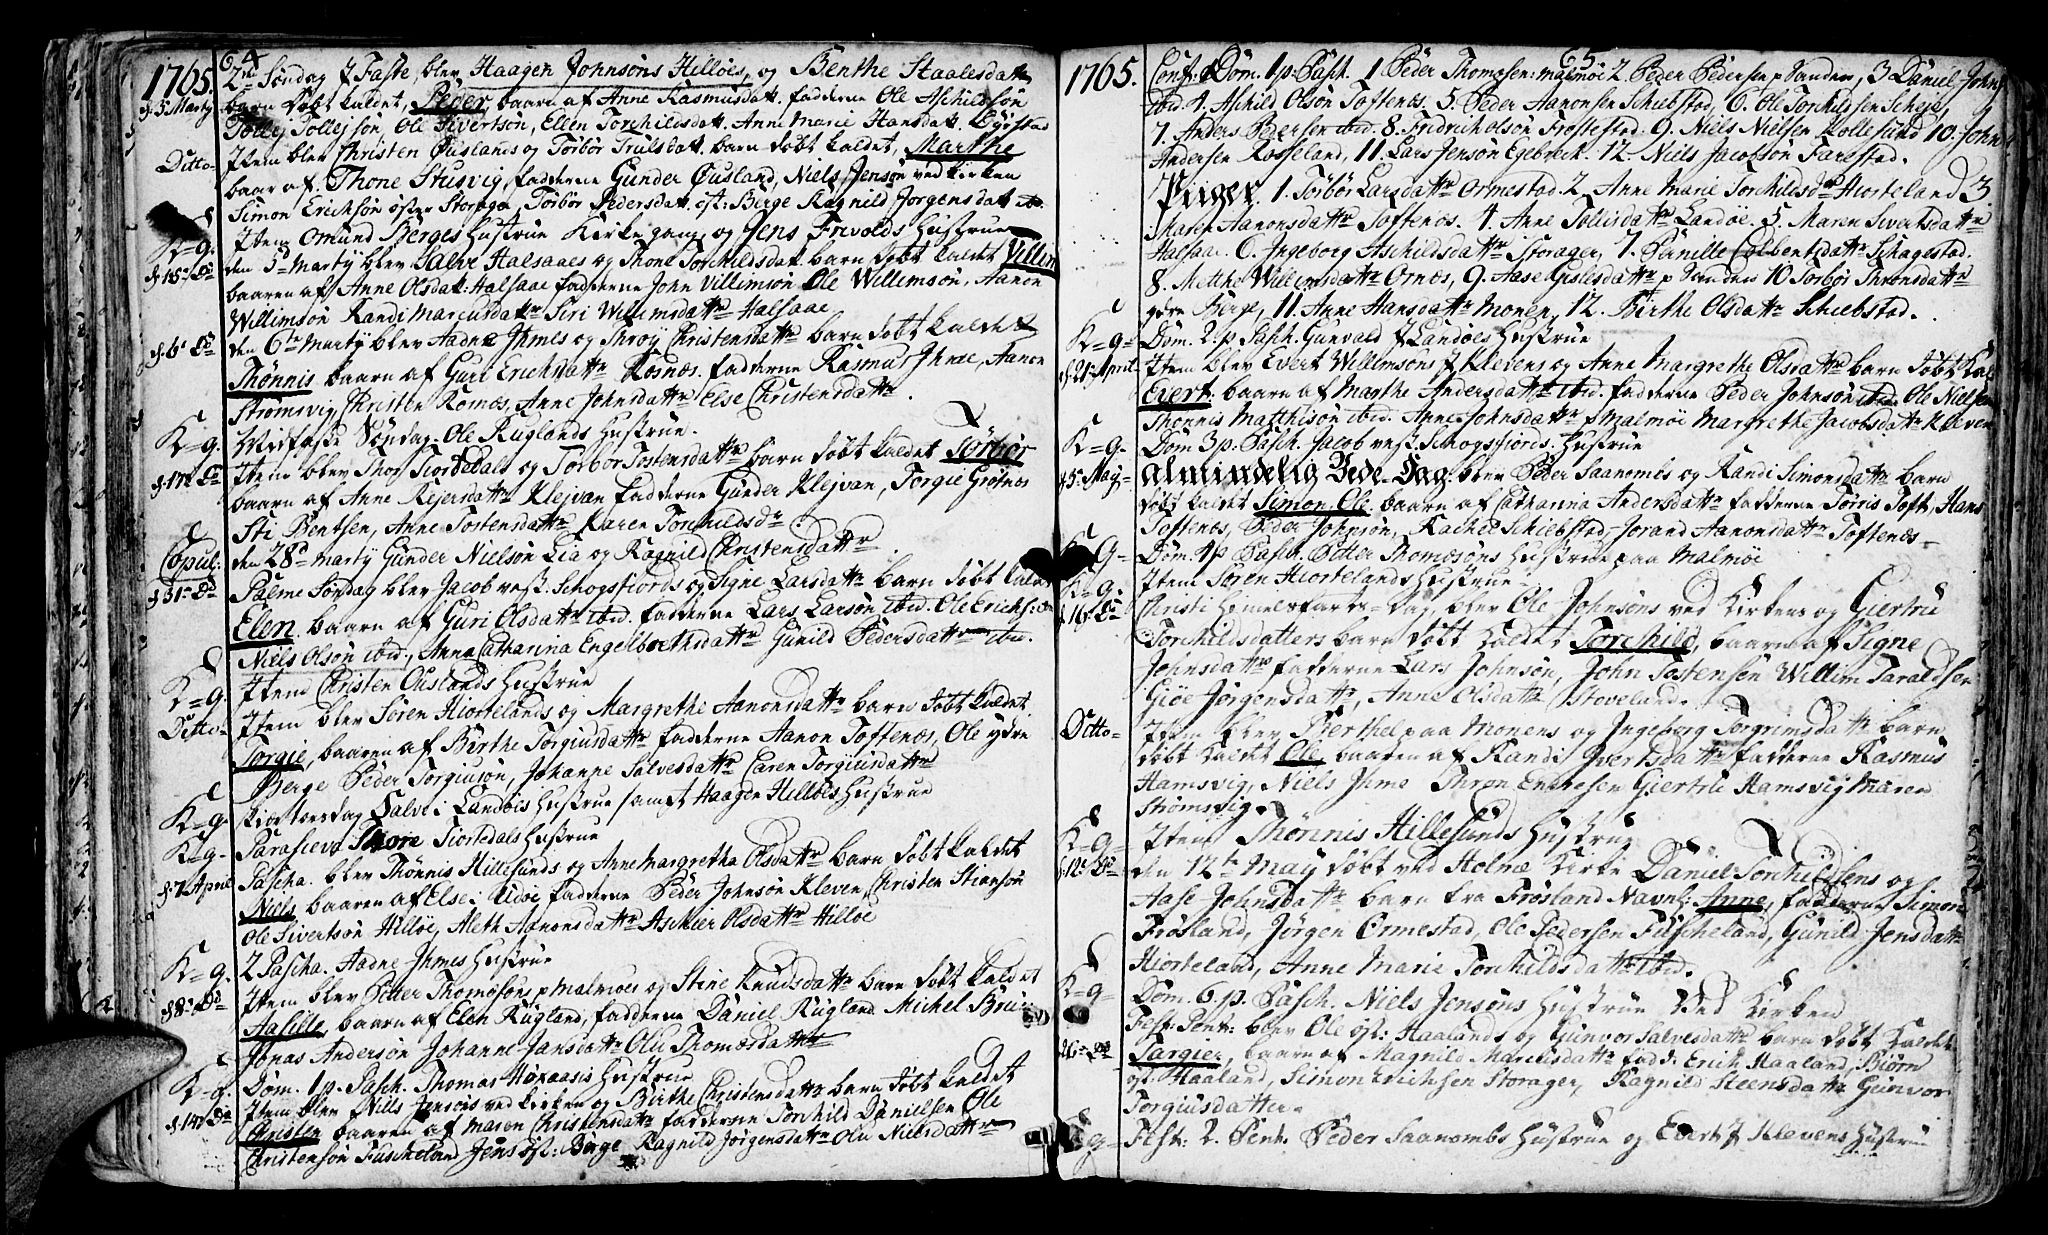 64
1765.
2den Søndag J Faste, blev Haagen Johnsøns Hilløes, og Benthe Staalesdatt
d. 3. Marty barn døbt kaldet, Peder baaren af Anne Rasmusdatt. fadderne Ole Aschildsøn
Tollej Tollejsøn, Ole Sivertsøn, Ellen Torchildsdatt. Anne Marie Hansdatt.
Ditto- Item blev Christen Øuslands og Torbør Trulsdatt. barn døbt kaldet, Marthe
baar af. Thone Stusvig, fadderne Gunder Øusland, Niels Jensøn ved Kirken
Simon Erichsøn øster Storager, Torbør Pedersdatt. øst: Berge Ragnild Jørgensdatt ib.
K=g. Item Omund Berges Hustrue Kirkegang, og Jens Frivolds Hustrue
den 5d Marty blev Salve Halsaaes og Thone Torchildsdatt. barn døbt kaldet Villim
baaren af Anne Olsdatt: Halsaae fadderne John Villimsøn Ole Willimsøn, Aanon
Willimsøn Randi Marcusdattr Siri Willimsdattr Halsaae
d. 6t Do den 6te Marty blev Aadne Ihmes og Throy Christensdattr barn døbt kaldet
Thønnis baarn af Guri Erichsdattr Rosnæs. fadderne Rasmus Ihme, Aanon
Strømsvig, Christen Romæs, Anne Johnsdattr Else Christensdattr.
K=g. Midfaste Søndag. Ole Ruglands Hustrue.
d. 17t Do Item blev Thor Tiordals og Torbør Tostensdattr barn døbt kaldet Torbør
baarn af Anne Rejersdattr Klejvan fadderne Gunder Klejvan, Torgie Grøsnes
Sti Bentsen, Anne Tostensdattr Karen Torchildsdr.
Copul: den 28d Marty Gunder Nielsøn Lia og Ragnild Christensdattr.
d. 31te Do Palme Søndag blev Jacob vest. Schogsfiords og Signe Larsdattr barn døbt kaldet
Elen baarn af Guri Olsdattr ibid. fadderne Lars Larsøn ibid. Ole Erichs: ib
Niels Olsøn ibid, Anna Catharina Engelbrethsdattr Gunild Pedersdattr ibid.
K=g. Item Christen Øuslands Hustrue
Ditto- Item blev Søren Hiortelands og Margrethe Aanonsdattr barn døbt kaldet
Torgie, baaren af Berthe Torgiusdattr fadderne Aanon Toftenæs, Ole ydre
Berge Peder Torgiusøn, Johanne Salvesdattr Caren Torgiusdattr
K=g. Skiertorsdag Salve i Landøis Hustrue samt Haagen Hilløes Hustrue
K=g- Parasceve Thore Tiordals Hustrue
d. 7. April Pascha. blev Thønnis Hillesunds og Anne Margretha Olsdattr barn døbt kaldet
Niels baaren af Else i Udøe fadderne Peder Johnsøn Kleven, Christen Stianson
Ole Sivertsøn Hilløe, Aleth Aanonsdattr Aschier Olsdattr Hilløe
K=g. 2 Pascha. Aadne Ihmes Hustrue
d. 8. Do Item blev Petter Thomæsøns p Malmøe og Stine Knudsdattr barn døbt kaldet
Aasille, baarn af Elen Rugland, fadderne Daniel Rugland Michel
Jonas Andersøn Johanne Jansdattr Olu Thomæsdattr
K=g. Dom. 1 p. Pasch. Thomas Høyaasis Hustrue
d. 14t Do Item blev Nills Jensøns ved Kirken og Birthe Christensdattr barn døbt kaldet
Christen baaren af Maren Christensdattr fadderne Torchild Danielsen Ole
Christensøn Fuscheland, Jens øst: Berge Ragnild Jørgensdattr Olu Nielsdattr
65
1765.
Conf: Dom. 1 p. Pasch. 1 Peder Thomæsen: Malmøe 2. Peder Pedersen p Sanden, 3 Daniel Johns
ibid. 4. Aschild Olsøn Toftenæs. 5. Peder Aanonsen Schiebstad, 6. Ole Torchildsen Scheje
7. Anders Bersen ibid. 8. Fridrich Olsøn Frøstestad. 9. Niels Nielsen Kollesund 10. John
Andersen Rosseland, 11. Lars Jensøn Egebrech. 12. Niels Jacobsøn Farestad.
Piiger. 1. Torbør Larsdattr Ormestad. 2. Anne Marie Torchildsdr Hiorteland 3.
Maren Aanonsdattr Toftenæs. 4. Anne Tollisdattr Landøe. 5. Maren Sivertsdattr
Halsaa. 6. Ingeborg Aschildsdattr Storager, 7. Pernille Colbentsdattr Schagestad.
8. Metthe Willimsdattr Ornæs, 9. Aase Gislesdattr p Sanden 10 Torbør Thronsdattr
ydre Berge, 11. Anne Hansdattr Monen, 12. Birthe Olsdattr Schiebstad.
K=g- Dom. 2. p. Pasch. Gunvald J Landøes Hustrue
d. 21 April- Item blev Evert Willimsøns J Klevens og Anne Margrethe Olsdattr barn døbt kald
Evert. baarn af Marthe Andersdattr ibid. fadderne Peder Johnsøn ibid. Ole Nielsen
Thønnis Matthisøn ibid. Anne Johnsdattr p Malmøe Margrethe Jacobsdattr Kleven
K=g. Dom 3 p. Pasch. Jacob vest. Schogsfiords. Hustrue
d. 5. Maj- Almindelig Bede-Dag: blev Peder Saanomes og Randi Simonsdattr barn
døbt kaldet Simon Ole. baarn af Catharina Andersdattr fadderne Torris Toft, Hans
Toftenæs, Peder Johnsøn, Rachel Schiebstad, Jorand Aanonsdattr Toftenæs-
K=g- Dom. 4 p. Pasch. Petter Thomæsøns Hustrue paa Malmøe
K=g. Item Søren Hiortelands Hustrue-
16 Do Christi Himmelfarts-Dag, blev Ole Johnsøns ved Kirken og Giertru
Torchildsdatters barn døbt kaldet Torchild, baaren af Signe
Johnsdattr fadderne Lars Johnsøn, John Tostensøn Willim Taraldsøn
Giøe Jørgensdattr, Anne Olsdattr Stoveland.
Ditto- Item blev Berthel paa Monens og Ingeborg Torgrimsdattr barn
døbt kaldet Ole, baaren af Randi Ivertsdattr fadderne Rasmus
Hamsvig, Niels Ihme Thron Ennesen Giertru Hamsvig Maren
Strømsvig.
K=g- Item Thønnis Hillesunds Hustrue
d. 12 Do den 12te May døbt ved Holme Kirke Daniel Torchildsens og
Aase Johnsdattr barn fra Frøsland Navnl: Anne, fadderne Simon
Frøsland, Jørgen Ormestad, Ole Pedersen Fuscheland, Gunild Jensdattr
Hiorteland, Anne Marie Torchildsdattr ibid.
K=g- Dom. 6. p. Pasch. Niels Jensøns Hustrue ved Kirken
26 Do Fest: Pent: blev Ole øst: Haalands og Gunvor Salvesdattr barn døbt kaldet
Targier, baaren af Magnild Marcusdattr fadd: Erich Haaland, Biørn
øst: Haaland, Simon Erichsen Storager, Ragnild Steensdattr Gunvor
Torgiusdatter.
g- Fest: 2. Pent. Peder Saanombs Hustrue og Evert J Klevens Hustrue